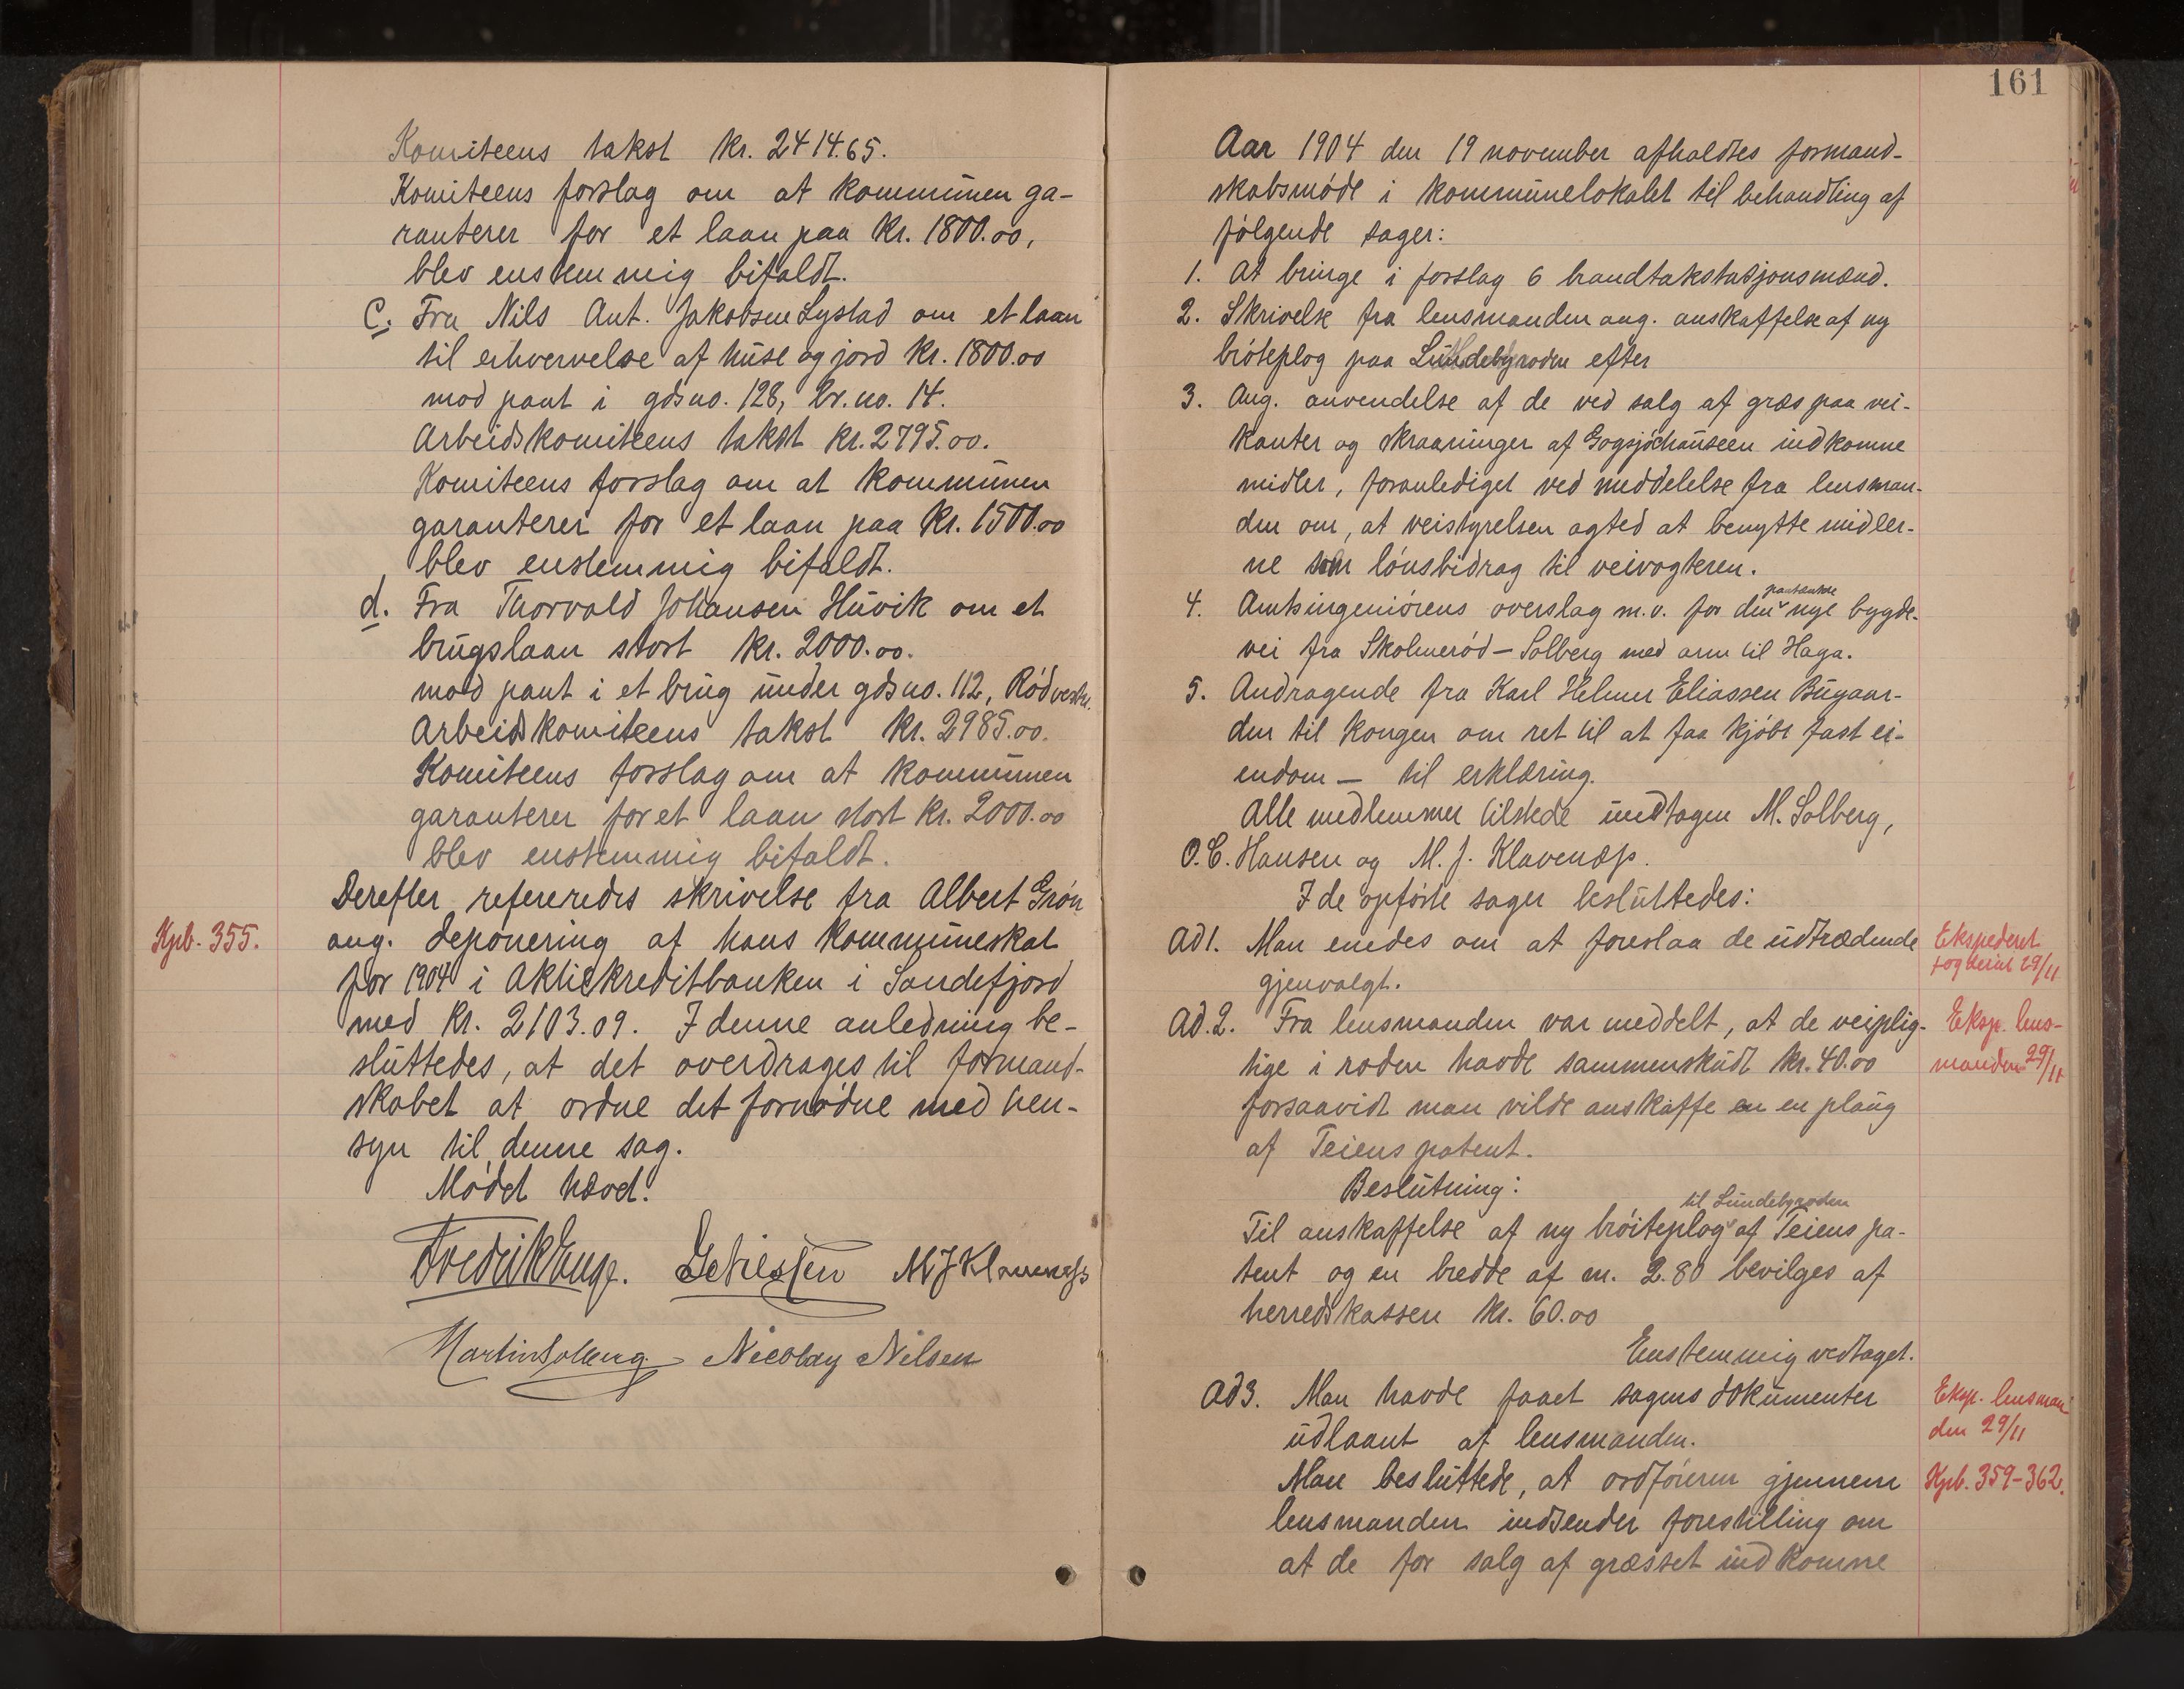 Komiteens takst kr. 2414.65.
Komiteens forslag om at kommunen ga-
ranterer for et laan paa kr. 1800.00,
blev enstemmig bifaldt.
c. Fra Nils Ant. Jakobsen Lystad om et laan
til erhvervelse af huse og jord kr. 1800.00
mod pant i gdsno. 128, br.no. 14.
Arbeidskomiteens takst kr. 2795.00.
Komiteens forslag om at kommunen
garanterer for et laan paa kr. 1500.00
blev enstemmig bifaldt.
d. Fra Thorvald Johansen Huvik om et
brugslaan stort kr. 2000.00.
mod pant i et brug under gdsno. 112, Rød vestre.
Arbeidskomiteens takst kr. 2985.00.
Komiteens forslag om at kommunen
garanterer for et laan stort kr. 2000.00
blev enstemmig bifaldt.
Derefter refereredes skrivelse fra Albert Grøn
Kpb. 355.
ang. deponering af hans kommuneskat
for 1904 i Aktiekreditbanken i Sandefjord
med kr. 2103.09. I denne anledning be-
sluttedes, at det overdrages til formand-
skabet at ordne det fornødne med hen-
syn til denne sag.
Mødet hævet.
Fredrik Enge. MJ Klavenæss
Martin Solberg Nicolay Nilsen
161
Aar 1904 den 19 november afholdtes formand-
skabsmøde i kommunelokalet til behandling af
følgende sager:
1. At bringe i forslag 6 brandtakstasjonsmænd.
2. Skrivelse fra lensmanden ang. anskaffelse af ny
brøteplog paa Lundebyroden efter
3. Ang. anvendelse af de ved salg af græs paa vei-
kanter og skraaninger af Gogsjøchauseen indkomne
midler, foranlediget ved meddelelse fra lensman-
den om, at veistyrelsen agted at benytte midler-
ne som lønsbidrag til veivogteren.
paatænkte
4. Amtsingeniørens overslag m.v. for den nye bygde-
vei fra Skolmerød – Solberg med arm til Haga.
5. Andragende fra Karl Helmer Eliassen Bugaar-
den til kongen om ret til at faa kjøbe fast ei-
endom – til erklæring.
Alle medlemmer tilstede undtagen M. Solberg,
O. C. Hansen og M. J. Klavenæss.
I de opførte sager besluttedes:
Ad 1. Man enedes om at foreslaa de udtrædende
gjenvalgt.
Ekspederet
fogderiet 29/11
Ad. 2. Fra lensmanden var meddelt, at de veiplig-
tige i roden havde sammenskudt kr. 40.00
forsaavidt man vilde anskaffe en en plaug
af Teiens patent.
Eksp. lens-
manden 29/11
Beslutning:
til Lundebyroden
Til anskaffelse af ny brøiteplog af Teiens pa-
tent og en bredde af m. 2.80 bevilges af
herredskassen kr. 60.00
Enstemmig vedtaget.
Ad 3. Man havde faaet sagens dokumenter
udlaant af lensmanden.
Eksp. lensman
den 29/11
Man besluttede, at ordføreren gjennem
Kpb. 359-362.
lensmanden indsender forestilling om
at de for salg af græsset indkomne